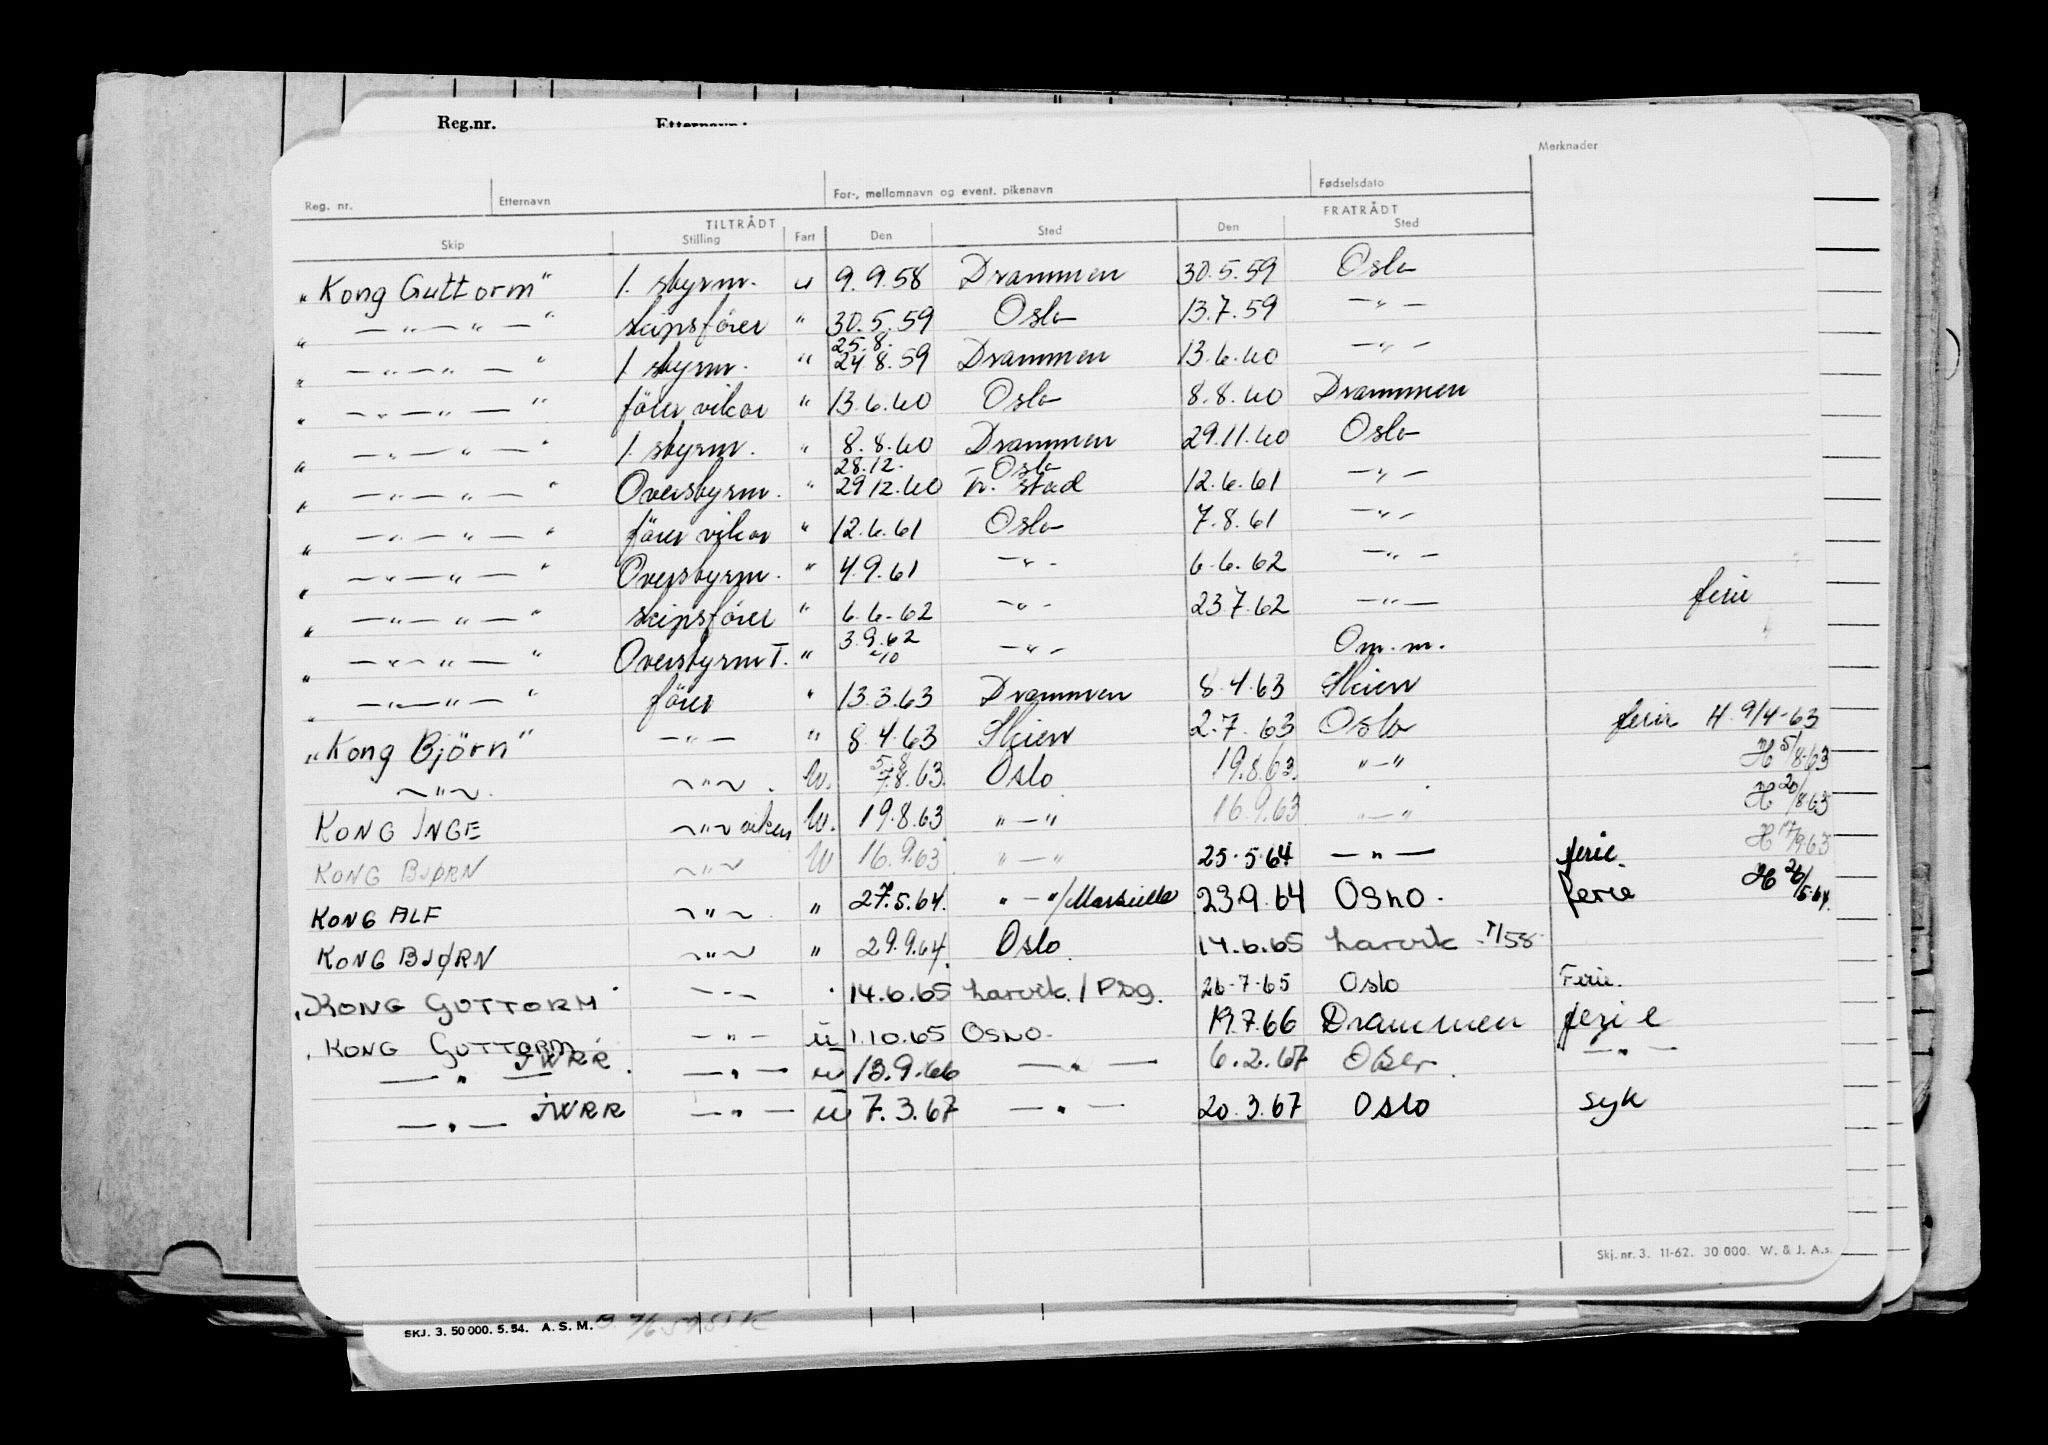 Reg.nr. Etternavn:
Merknader
Reg. nr. Etternavn For-, mellomnavn og event. pikenavn Fødselsdato
TILTRÅDT FRATRÅDT
Skip Stilling Fart Den Sted Den Sted
"Kong Guttorm" 1. styrm. u 9.9.58 Drammen 30.5.59 Oslo
" — " — " — " skipsfører " 30.5.59 Oslo 13.7.59 — " —
25.8.
" — " — " — " 1 styrm. " 24.8.59 Drammen 13.6.60 — " —
" — " — " — " förer vikar " 13.6.60 Oslo 8.8.60 Drammen
" — " — " — " 1. styrm. " 8.8.60 Drammen 29.11.60 Oslo
28.12. Oslo
" — " — " — " Overstyrm. " 29 12.60 Fr. stad 12.6.61 — " —
" — " — " — " förer vikar " 12.6.61 Oslo 7.8.61 — " —
" — " — " — " Overstyrm. " 4.9.61 — " — 6.6.62 — " —
" — " — " — " skipsförer " 6.6.62 — " — 23.7.62 — " — ferie
" — " — " — " Overstyrm I. " 3.9.62 — " — Om.m.
" — " — " — " förer " 13.3.63 Drammen 8.4.63 Skien
"Kong Björn" — " — " 8.4.63 Skien 2.7.63 Oslo ferie H. 9/4-63
5.8
— " — — " — W. 7.8.63. Oslo 19.8.63. " — " H 5/8-63
KONG INGE — " — vikar W. 19.8.63 " — " 16.9.63 " — " H 20/8-63
KONG BJØRN — " — W 16.9.63 " — " 25.5.64 — " — ferie. H 17/9-63
KONG ALF — " — " 27.5.64. " — "/Marseille 23.9.64 OSLO. ferie H 26/5-64.
KONG BJØRN — " — " 29.9.64. Oslo 14.6.65 Larvik 7/58
"KONG GUTTORM" — " — " 14.6.65 Larvik / Pbg. 26.7.65 Oslo Ferie.
"KONG GUTTORM — " — u 1.10.65 OSLO. 19.7.66 Drammen ferie
— " — JWRR. — " — u 13.9.66 — " — 6.2.67 — " —
— " — JWRR — " — u 7.3.67 — " — 20.3.67 Oslo syk
Skj. nr. 3. 11-62. 30 000. W. & J. A.s.
SKJ. 3. 50 000. 5.54. A.S.M.